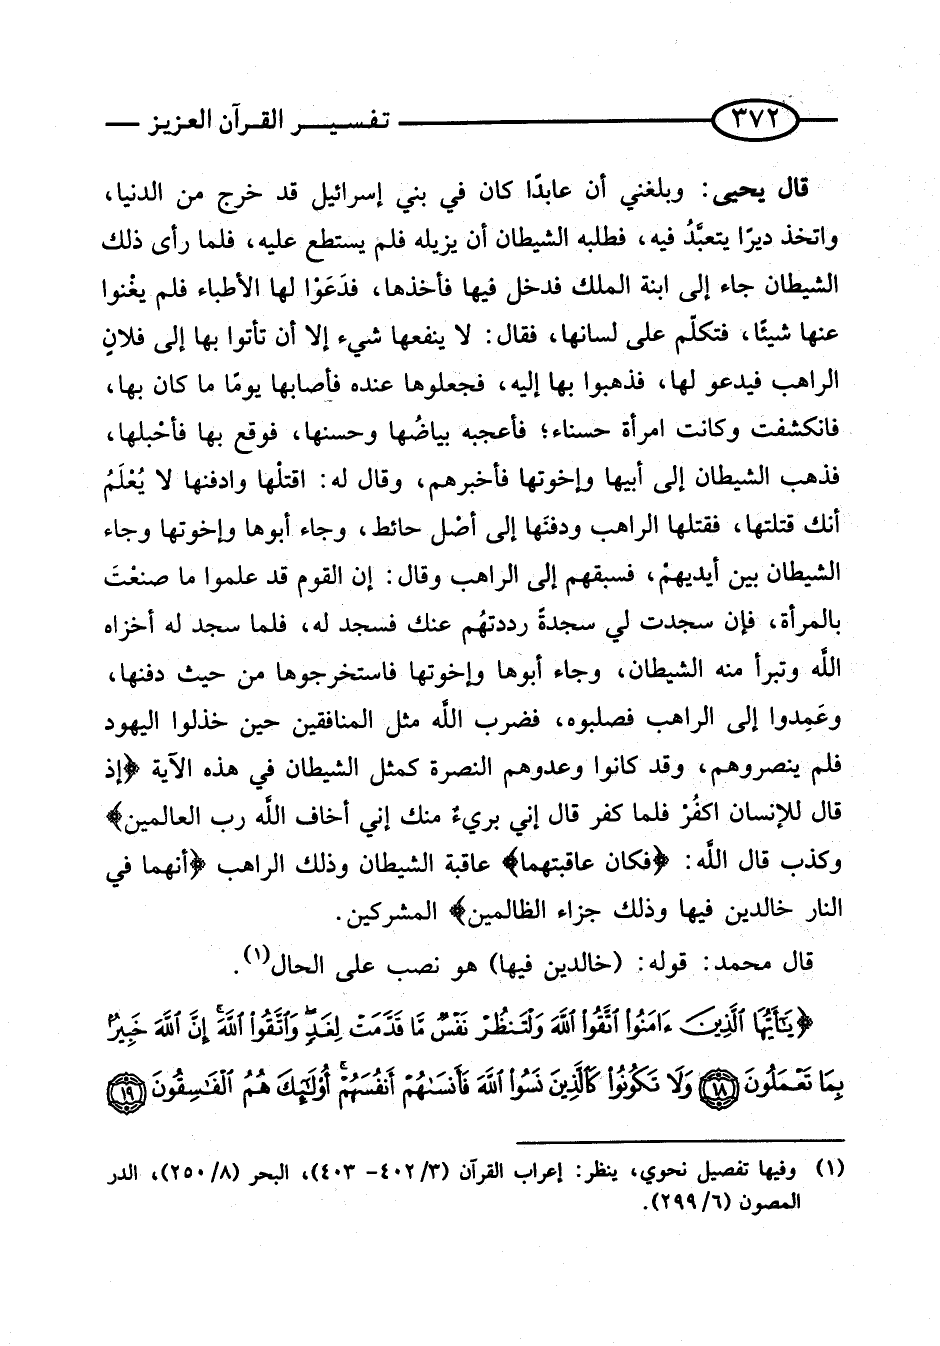 ٣٧٢ تفسير القرآن العزيز
قال يحيى: وبلغني أن عابدًا كان في بني إسرائيل قد خرج من الدنيا،
واتخذ ديرًا يتعبَّدُ فيه، فطلبه الشيطان أن يزيله فلم يستطع عليه، فلما رأى ذلك
الشيطان جاء إلى ابنة الملك فدخل فيها فأخذها، فدَعَوْا لها الأطباء فلم يغْنوا
عنها شيئًا، فتكلّم على لسانها، فقال: لا ينفعها شيء إلا أن تأتوا بها إلى فلانٍ
الراهب فيدعو لها، فذهبوا بها إليه، فجعلوها عنده فأصابها يومًا ما كان بها،
فانكشفت وكانت امرأة حسناء؛ فأعجبه بياضُها وحسنها، فوقع بها فأحْبلها،
فذهب الشيطان إلى أبيها وإخوتها فأخبرهم، وقال له: اقتلْها وادفنها لا يُعْلَمُ
أنك قتلتها، فقتلها الراهب ودفنَها إلى أصْل حائط، وجاء أبوها وإخوتها وجاء
الشيطان بين أيديهمْ، فسبقهم إلى الراهب وقال: إن القوم قد علموا ما صنعْتَ
بالمرأة، فإن سجدت لي سجدةً رددتهُم عنك فسجد له، فلما سجد له أخزاه
اللَّه وتبرأ منه الشيطان، وجاء أبوها وإخوتها فاستخرجوها من حيث دفنها،
وعَمِدوا إلى الراهب فصلبوه، فضرب اللَّه مثل المنافقين حين خذلوا اليهود
فلم ينصروهم، وقد كانوا وعدوهم النصرة كمثل الشيطان في هذه الآية ﴿إذ
قال للإنسان اكفُرْ فلما كفر قال إني بريءٌ منك إني أخاف اللَّه رب العالمين﴾
وكذب قال اللَّه: ﴿فكان عاقبتهما﴾ عاقبة الشيطان وذلك الراهب ﴿أنهما في
النار خالدين فيها وذلك جزاء الظالمين﴾ المشركين.
قال محمد: قوله: (خالدين فيها) هو نصب على الحال(١).
﴿يَٰٓأَيُّهَا ٱلَّذِينَ ءَامَنُوا۟ ٱتَّقُوا۟ ٱللَّهَ وَلْتَنظُرْ نَفْسٌ مَّا قَدَّمَتْ لِغَدٍ ۖ وَٱتَّقُوا۟ ٱللَّهَ ۚ إِنَّ ٱللَّهَ خَبِيرٌۢ
بِمَا تَعْمَلُونَ ١٨ وَلَا تَكُونُوا۟ كَٱلَّذِينَ نَسُوا۟ ٱللَّهَ فَأَنسَىٰهُمْ أَنفُسَهُمْ ۚ أُو۟لَٰٓئِكَ هُمُ ٱلْفَٰسِقُونَ ١٩
(١) وفيها تفصيل نحوي، ينظر: إعراب القرآن (٣/ ٤٠٢- ٤٠٣)، البحر (٨/ ٢٥٠)، الدر
المصون (٦/ ٢٩٩).